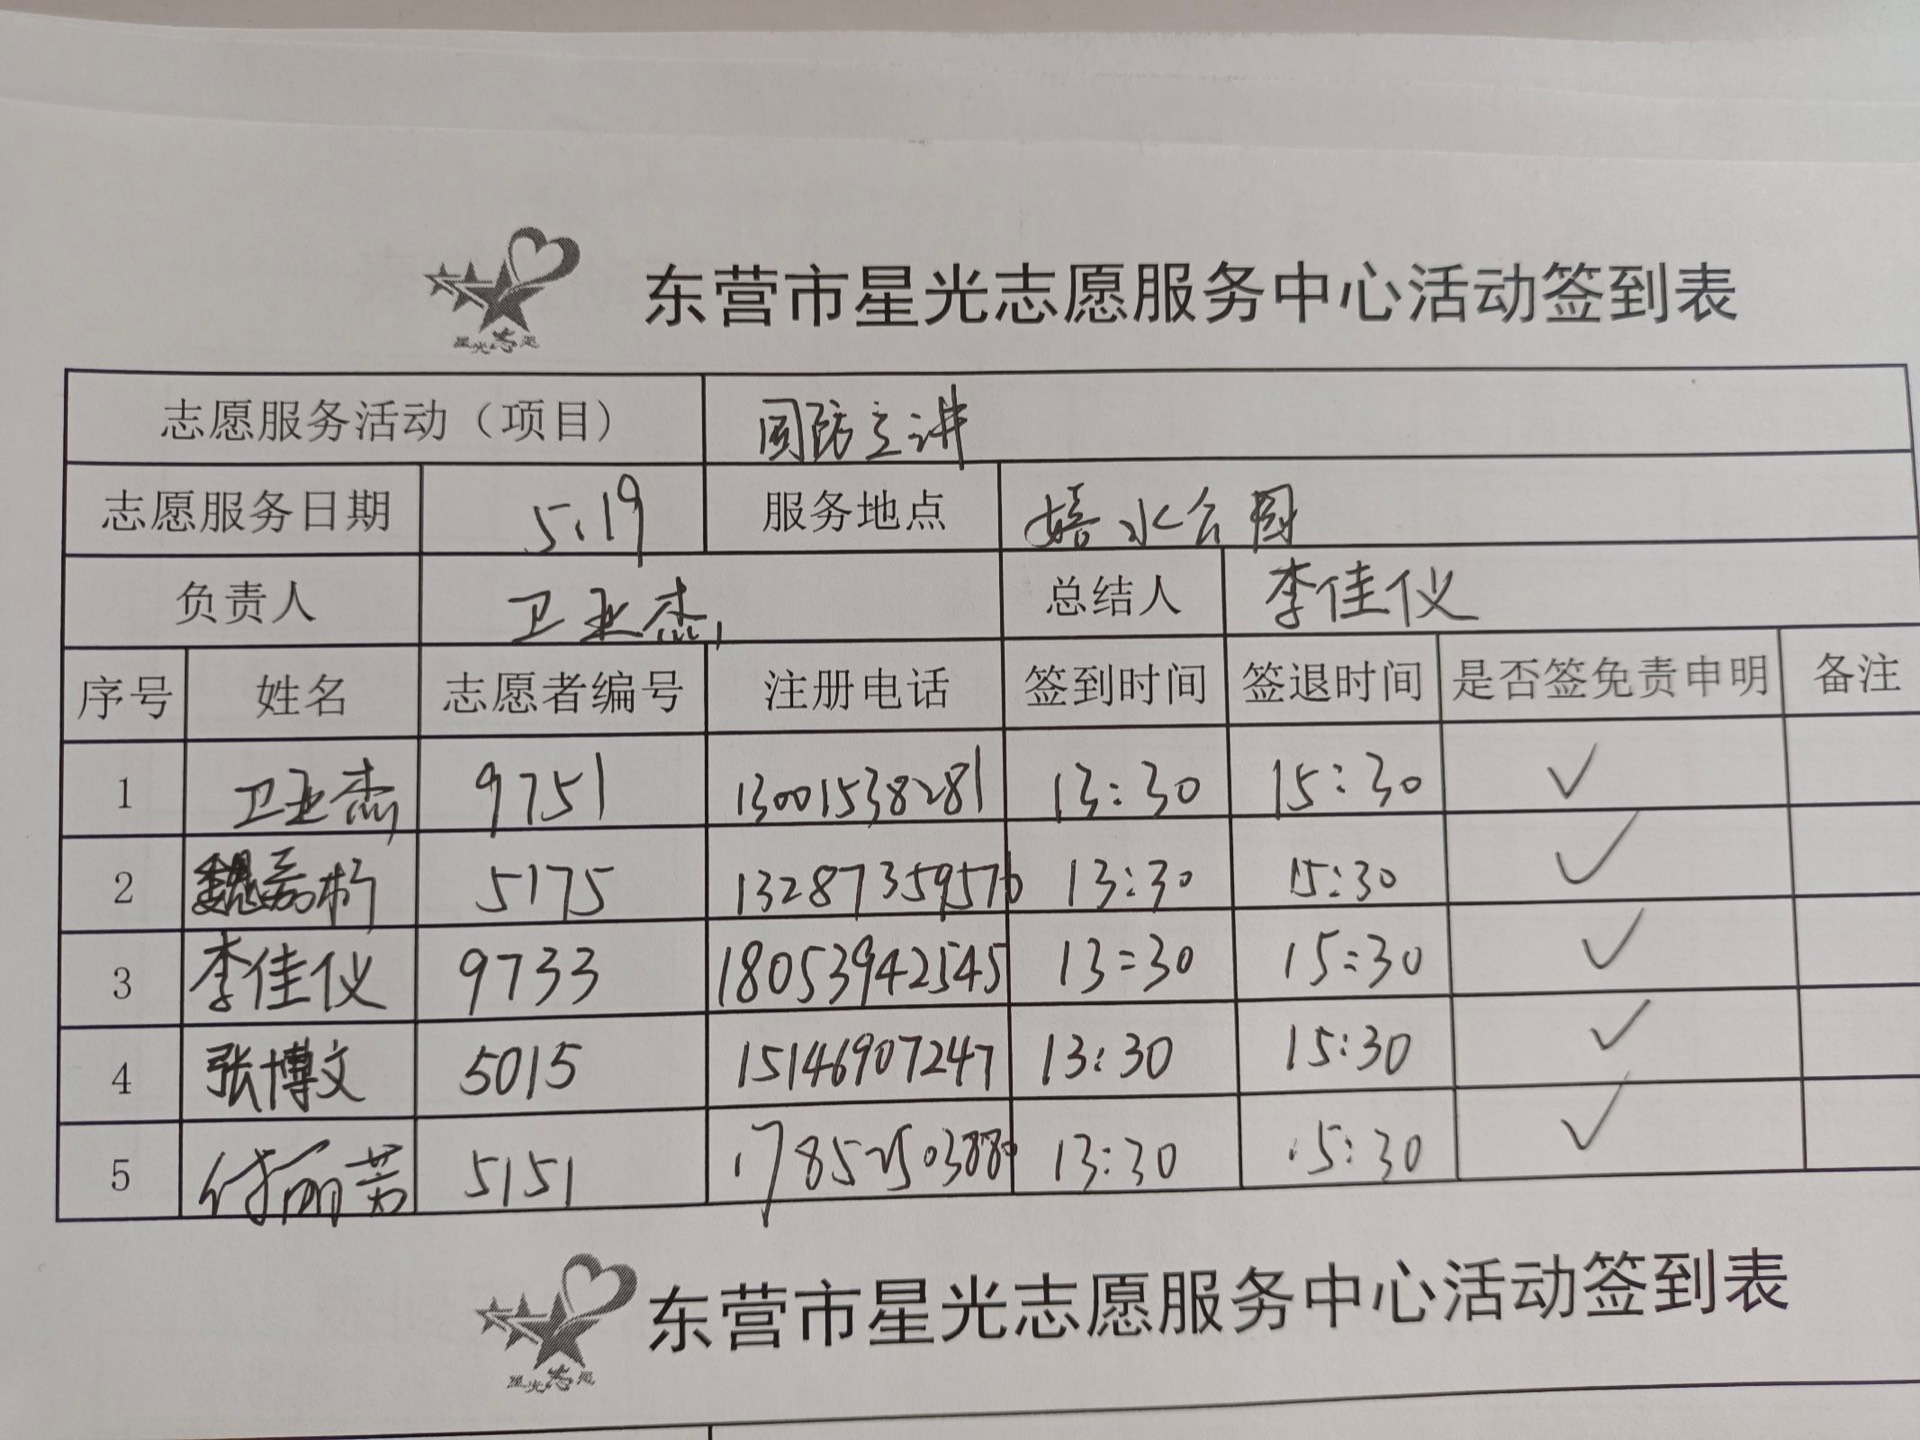 东营市星光志愿服务中心活动签到表
星光志愿
志愿服务活动（项目） 国防主讲
志愿服务日期 5.19 服务地点 水公园
负责人 卫亚杰 总结人 李佳仪
序号 姓名 志愿者编号 注册电话 签到时间 签退时间 是否签免责申明 备注
1 卫亚杰 9751 13001538281 13:30 15:30 ✓
2 魏 5175 13287359576 13:30 15:30 ✓
3 李佳仪 9733 18053942545 13:30 15:30 ✓
4 张博文 5015 15146907247 13:30 15:30 ✓
5 付丽芳 5151 17852503880 13:30 15:30 ✓
东营市星光志愿服务中心活动签到表
星光志愿